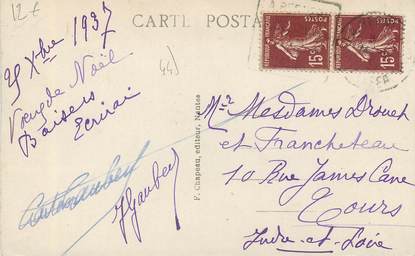 12 €
CARTE POSTA
25 Xbre 1937
Vœux de Noël
Baisers
Ecrirai
44)
F. Chapeau, editeur, Nantes
POSTES
15c
POSTES
15c
Mesdames Drouet
et Francheteau
10 Rue James Cane
Tours
Indre-et-Loire